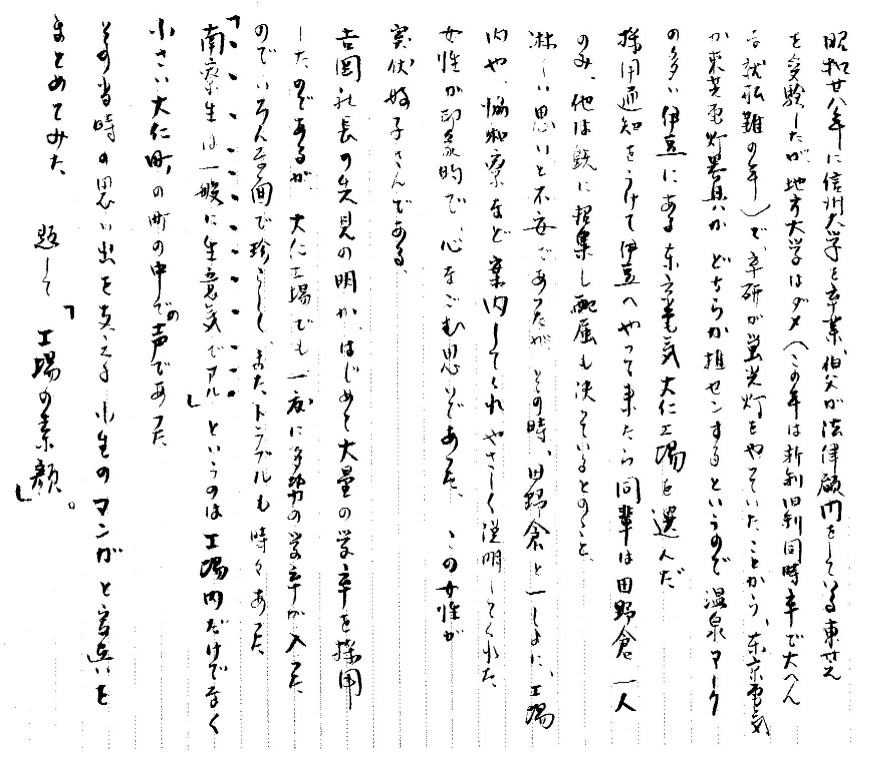 昭和廿八年に信州大学を卒業、伯父が法律顧問をしている東芝
を受験したが、地方大学はダメ（この年は新制旧制同時卒で大へん
な就職難の年）で、卒研が蛍光灯をやっていたことから、東京電気
か東芝電灯器具か どちらか推センするというので温泉マーク
の多い伊豆にある東京電気大仁工場を選んだ
採用通知をうけて伊豆へやって来たら同輩は田野倉一人
のみ、他は既に招集し配属も決っているとのこと、
淋しい思いと不安であったが、その時、田野倉と一しょに、工場
内や、協和寮など案内してくれやさしく説明してくれた
女性が印象的で、心なごむ思いであった、この女性が
実伏妓子さんである、
吉岡社長の先見の明か、はじめて大量の学卒を採用
したのであるが、大仁工場でも一度に多勢の学卒が入った
のでいろんな面で珍らしく、また、トラブルも時々あった
「南寮生は一般に生意気でアル」というのは工場内だけでなく
小さい大仁町の町の中での声であった
その当時の思い出を交える 小生のマンガと言葉を
まとめてみた 題して「工場の素顔」。